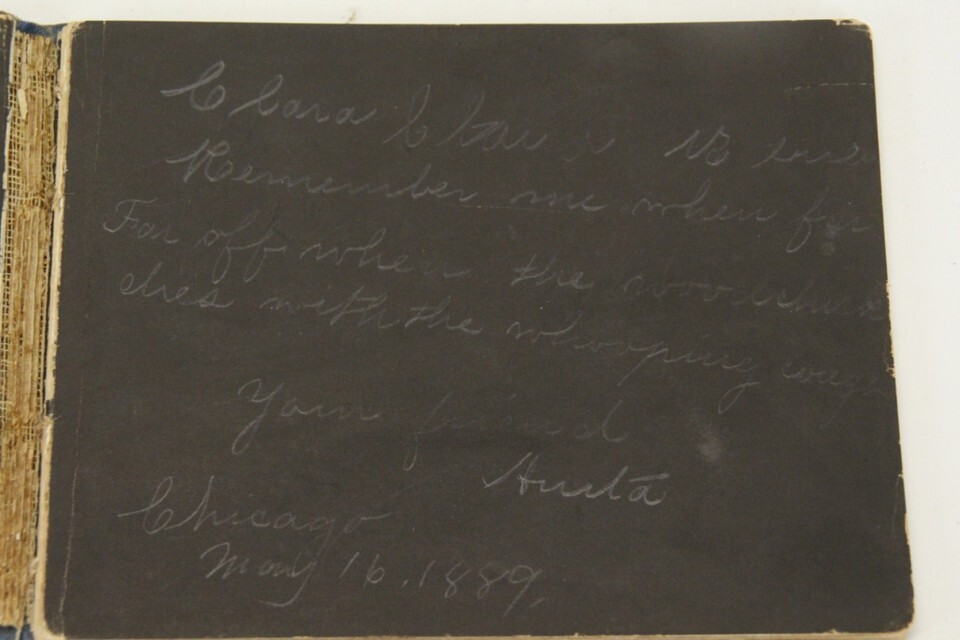 Clara Clara
Remember me when far
Far off when the woodchuck
dies with the whooping cough
Your friend
Anita
Chicago
May 16, 1889.